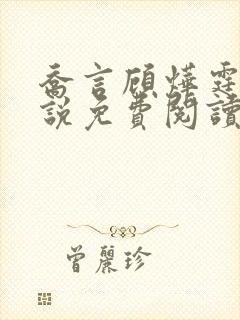 喬言顧燁霆
説免費閱讀
曾麗珍